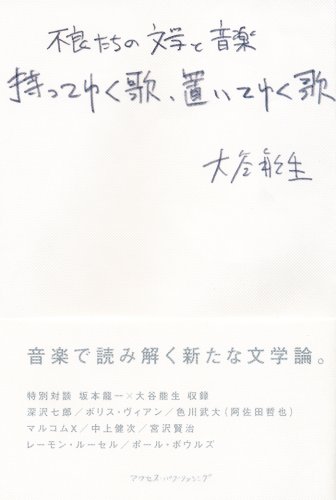 不良たちの文学と音楽
持ってゆく歌、置いてゆく歌
大谷能生
音楽で読み解く新たな文学論。
特別対談 坂本龍一×大谷能生 収録
深沢七郎／ボリス・ヴィアン／色川武大（阿佐田哲也）
マルコムX／中上健次／宮沢賢治
レーモン・ルーセル／ポール・ボウルズ
アクセス・パブリッシング